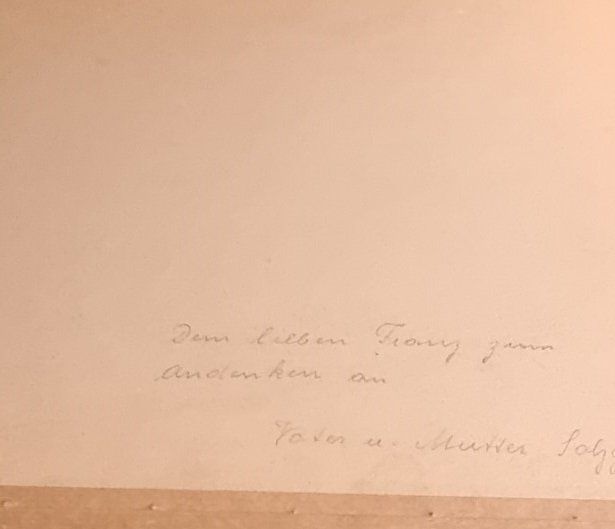 Dem lieben Franz zum
andenken an
Vater u. Mutter